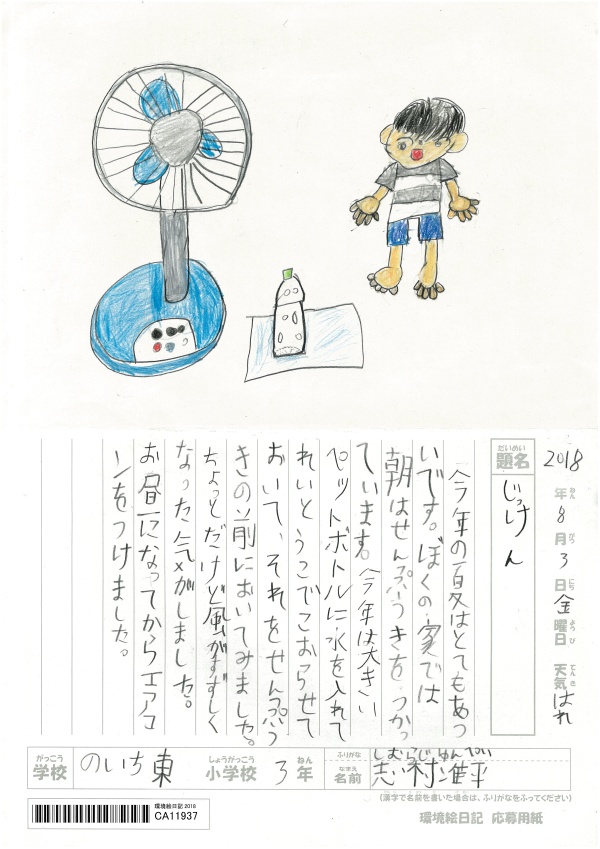 2018年8月3日金曜日 天気はれ
ねん がつ にち ようび てんき
だいめい
題名 じっけん
今年の夏はとてもあつ
いです。ぼくの家では
朝はせんぷうきをつかっ
ています。今年は大きい
ペットボトルに水を入れて
れいとうこでこおらせて
おいて、それをせんぷう
きの前においてみました。
ちょっとだけど風がすずしく
なった気がしました。
お昼になってからエアコ
ンをつけました。
がっこう しょうがっこう ねん
学校 のいち東 小学校 3年
ふりがな しむらじゅんぺい
なまえ
名前 志村準平
(漢字で名前を書いた場合は、ふりがなをふってください)
環境絵日記 2018
CA11937
環境絵日記 応募用紙